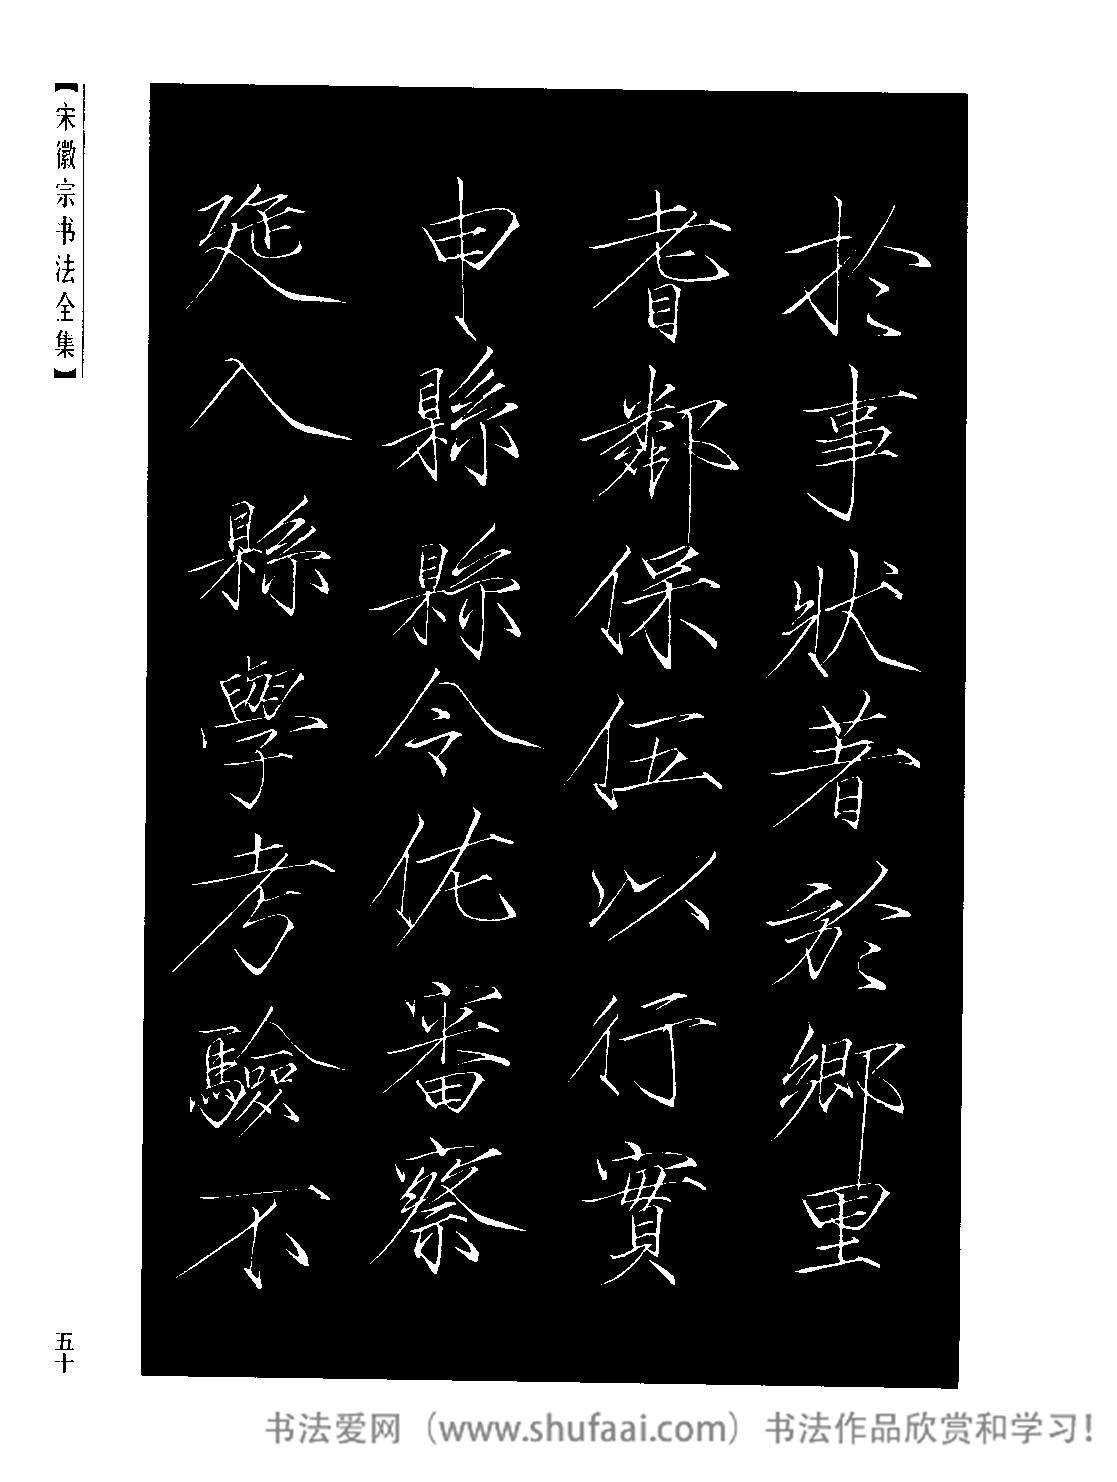 扵事狀著於鄉里
耆鄰保伍以行實
申縣縣令佐審察
延入縣學考驗不
【宋徽宗书法全集】
五十
书法爱网（www.shufaai.com）书法作品欣赏和学习！